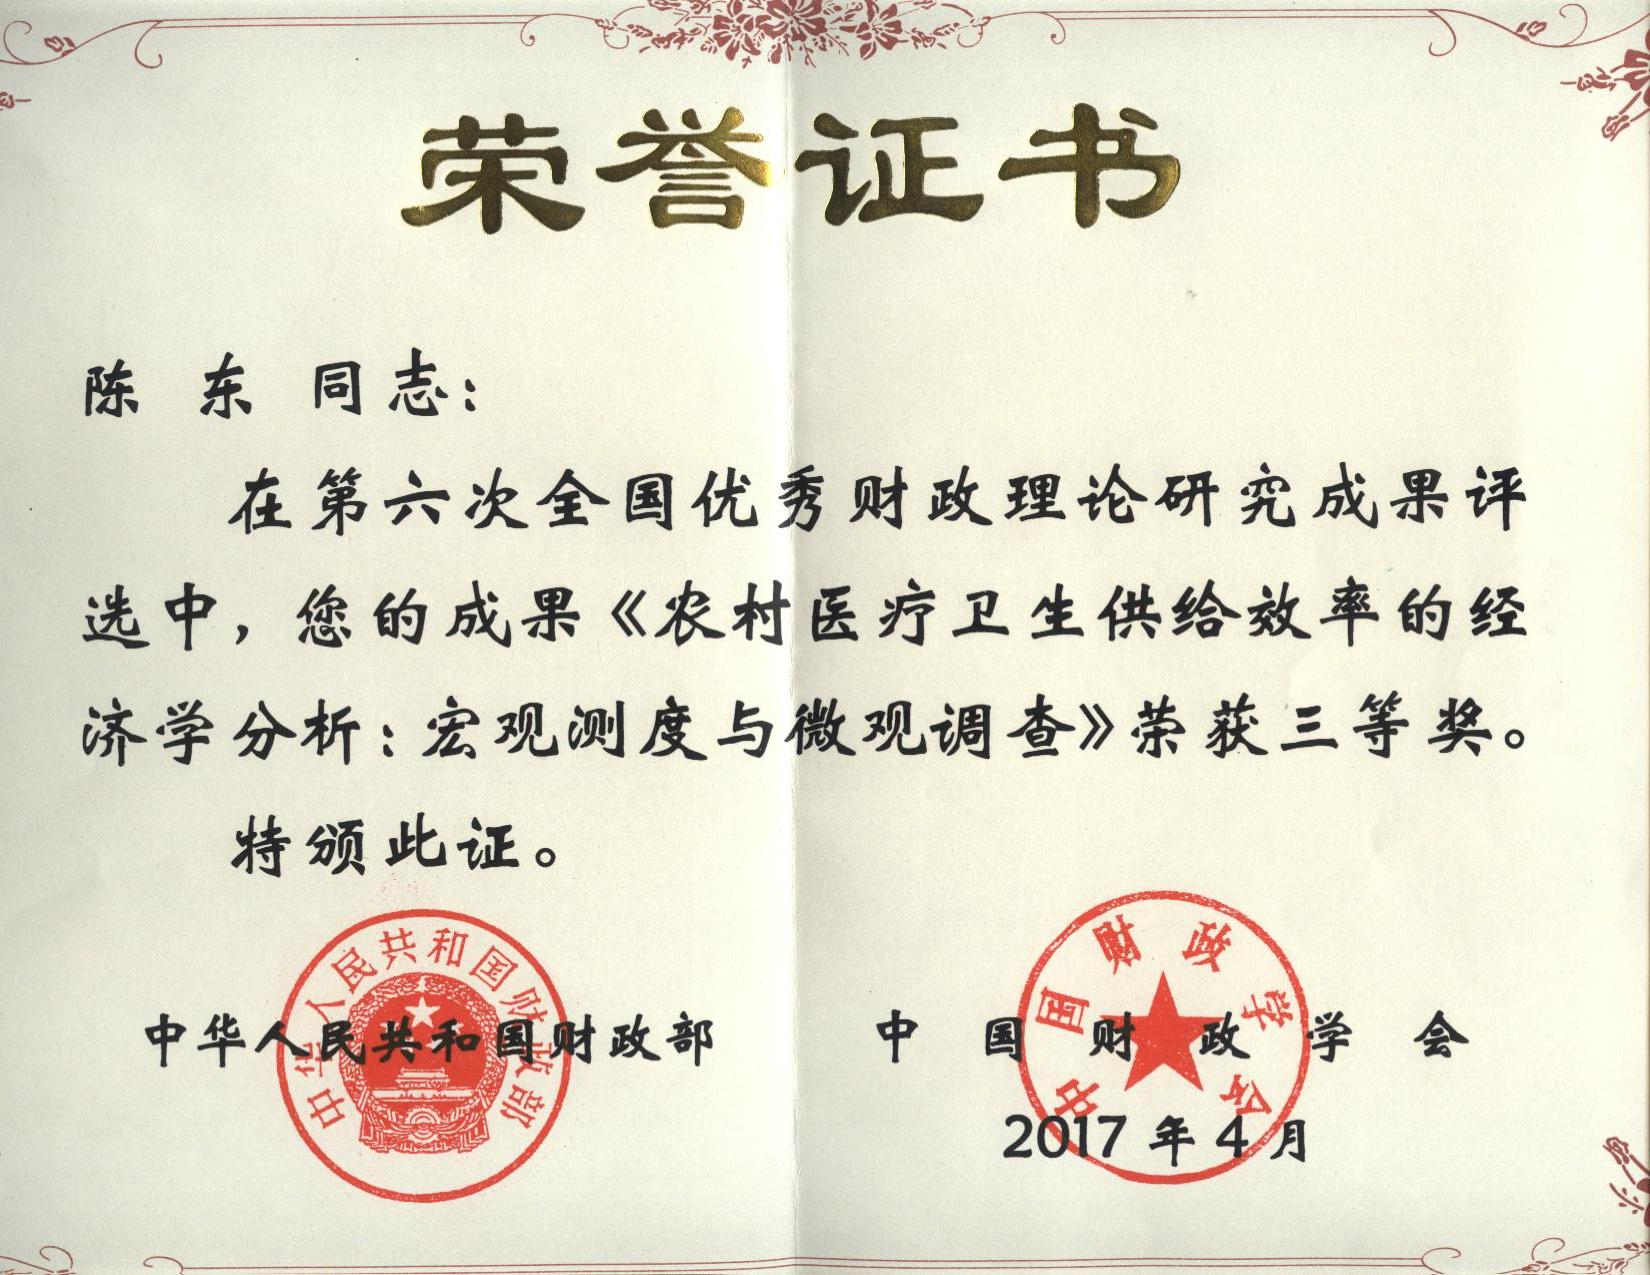 荣誉证书
陈 东 同志：
在第六次全国优秀财政理论研究成果评
选中，您的成果《农村医疗卫生供给效率的经
济学分析：宏观测度与微观调查》荣获三等奖。
特颁此证。
中华人民共和国财政部
中华人民共和国财政部
中国财政学会
中国财政学会
2017年4月